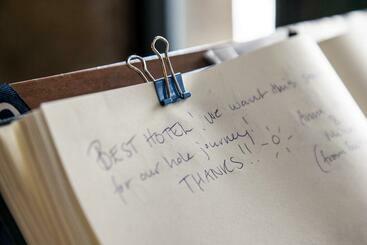 BEST HOTEL! We want this
for our hole journey!
THANKS!!!
(from